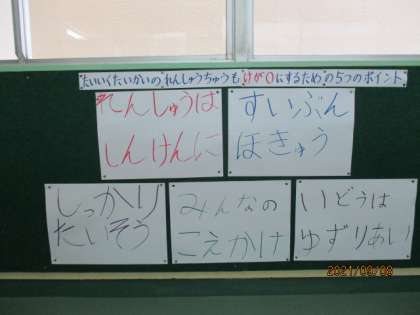 たいいくたいかいの"れんしゅうちゅうも"けが0にするため"の5つのポイント
れんしゅうは
しんけんに
すいぶん
ほきゅう
しっかり
たいそう
みんなの
こえかけ
いどうは
ゆずりあい
2021/09/08